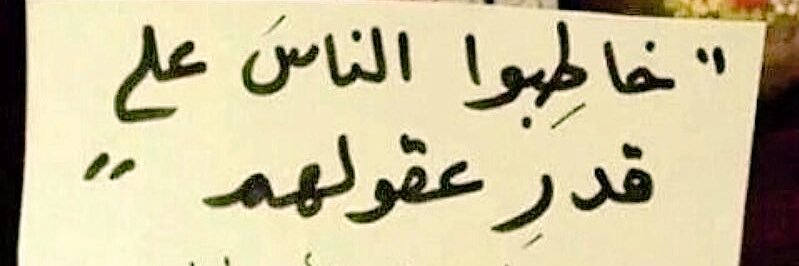 "خاطِبوا الناسَ علي
قدرِ عقولهم"